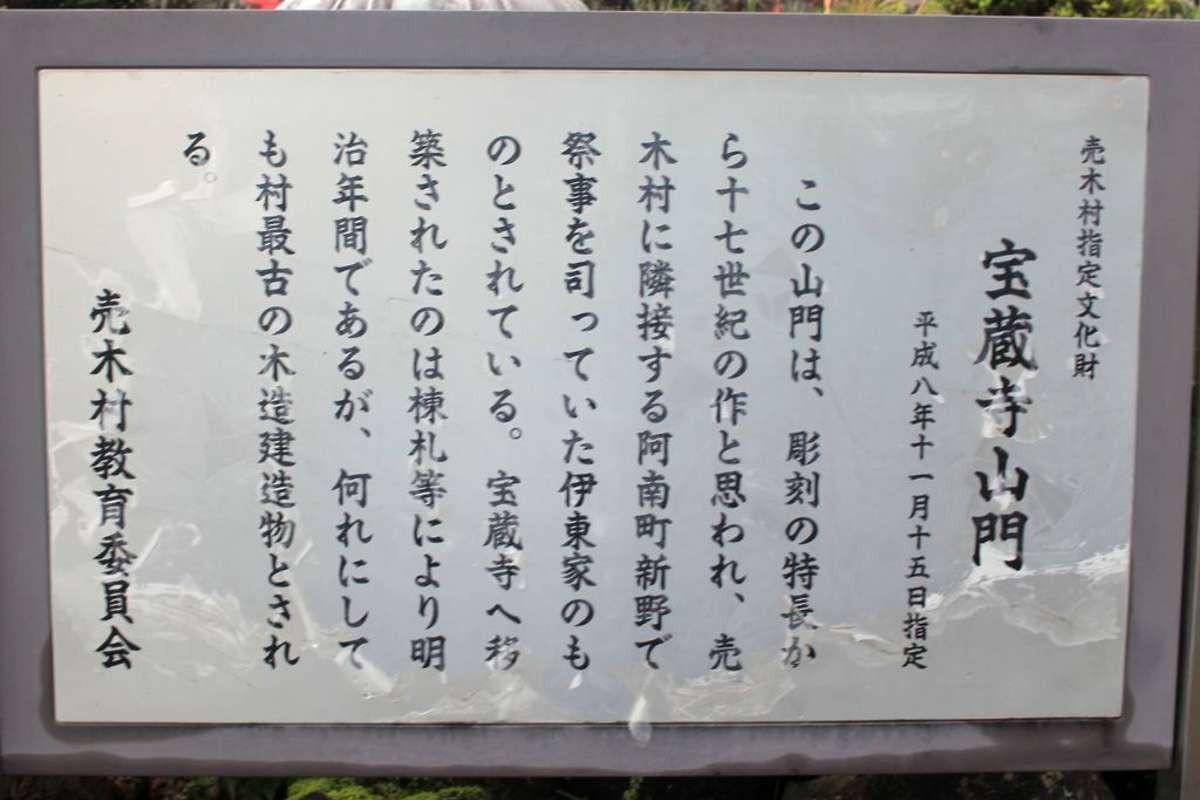 売木村指定文化財
宝蔵寺山門
平成八年十一月十五日指定
この山門は、彫刻の特長か
ら十七世紀の作と思われ、売
木村に隣接する阿南町新野で
祭事を司っていた伊東家のも
のとされている。宝蔵寺へ移
築されたのは棟札等により明
治年間であるが、何れにして
も村最古の木造建造物とされ
る。
売木村教育委員会